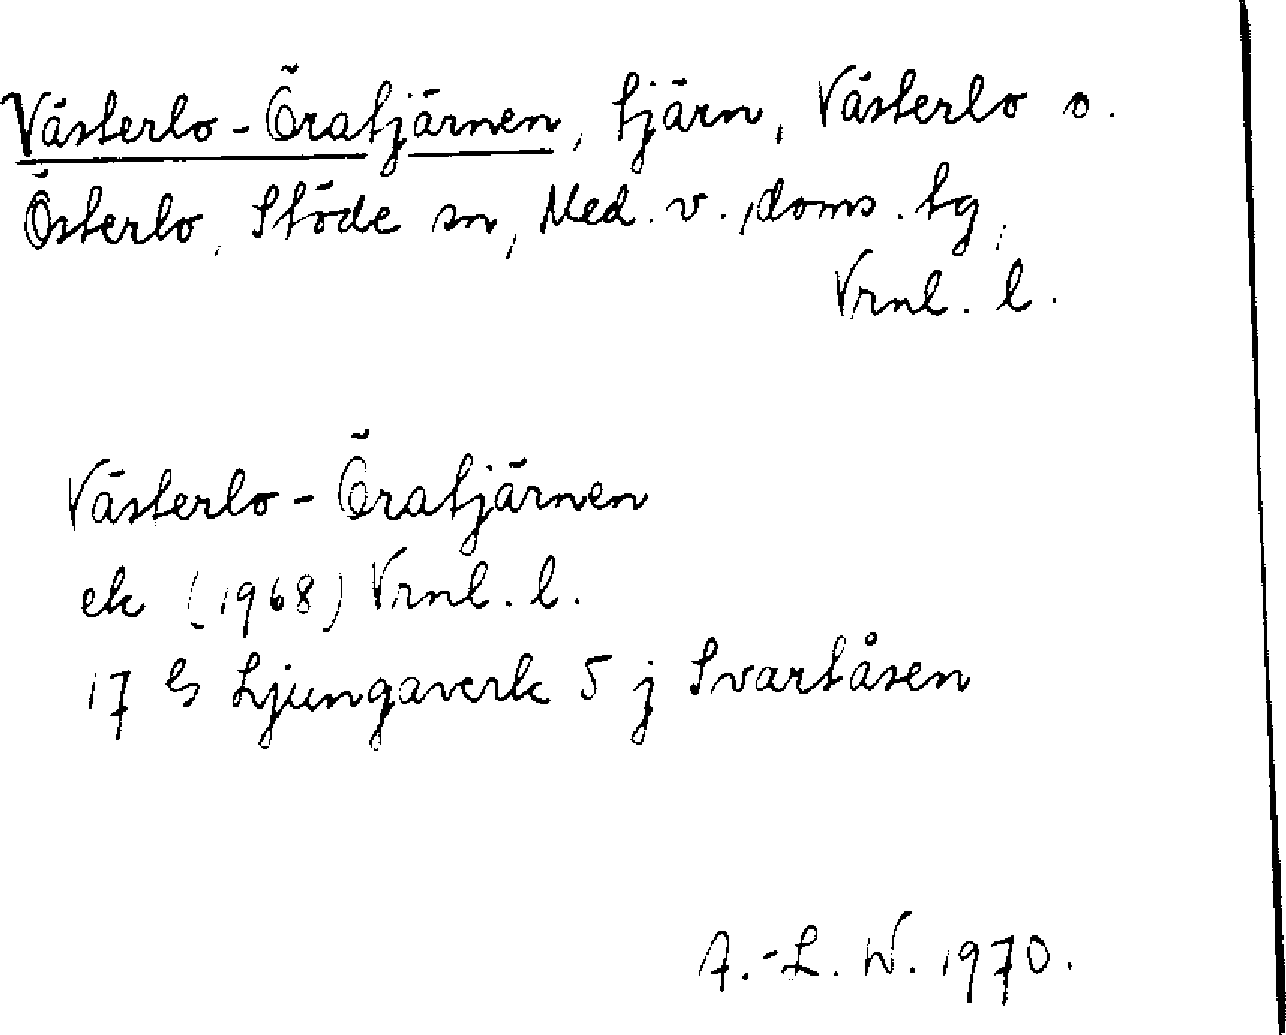 Västerlo-Öratjärnen, tjärn, Västerlo o.
Österlo, Stöde sn, Med. v., doms. tg,
Vrnl. l.
Västerlo-Öratjärnen
ek (1968) Vrnl. l.
17 G Ljungaverk 5 j Svartåsen
A.-L. W. 1970.